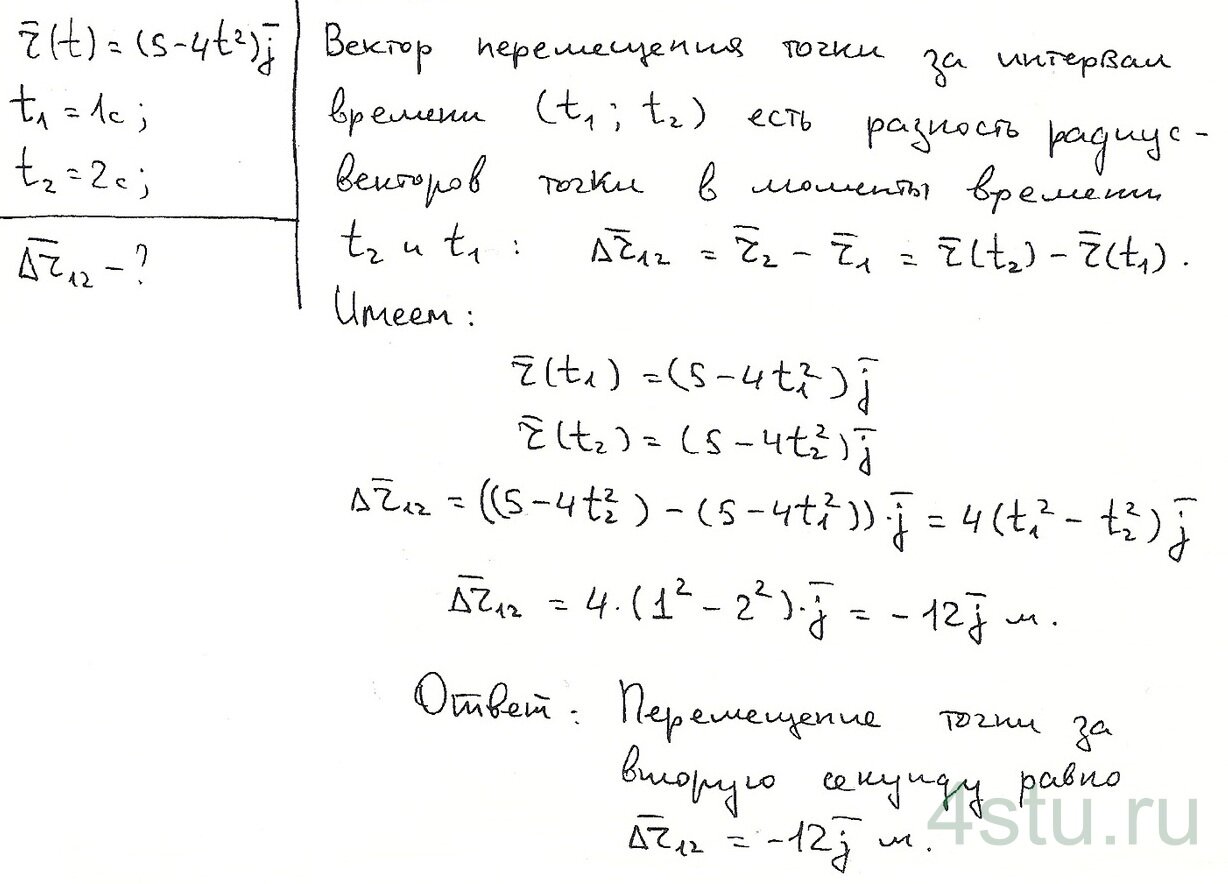 r̄(t) = (5-4t²)j̄
t₁ = 1с;
t₂ = 2с;
Δr̄₁₂ - ?
Вектор перемещения точки за интервал
времени (t₁; t₂) есть разность радиус-
векторов точки в моменты времени
t₂ и t₁: Δr̄₁₂ = r̄₂ - r̄₁ = r̄(t₂) - r̄(t₁).
Имеем:
r̄(t₁) = (5-4t₁²)j̄
r̄(t₂) = (5-4t₂²)j̄
Δr̄₁₂ = ((5-4t₂²) - (5-4t₁²))·j̄ = 4(t₁² - t₂²)j̄
Δr̄₁₂ = 4·(1² - 2²)·j̄ = -12j̄ м.
Ответ: Перемещение точки за
вторую секунду равно
Δr̄₁₂ = -12j̄ м.
4stu.ru